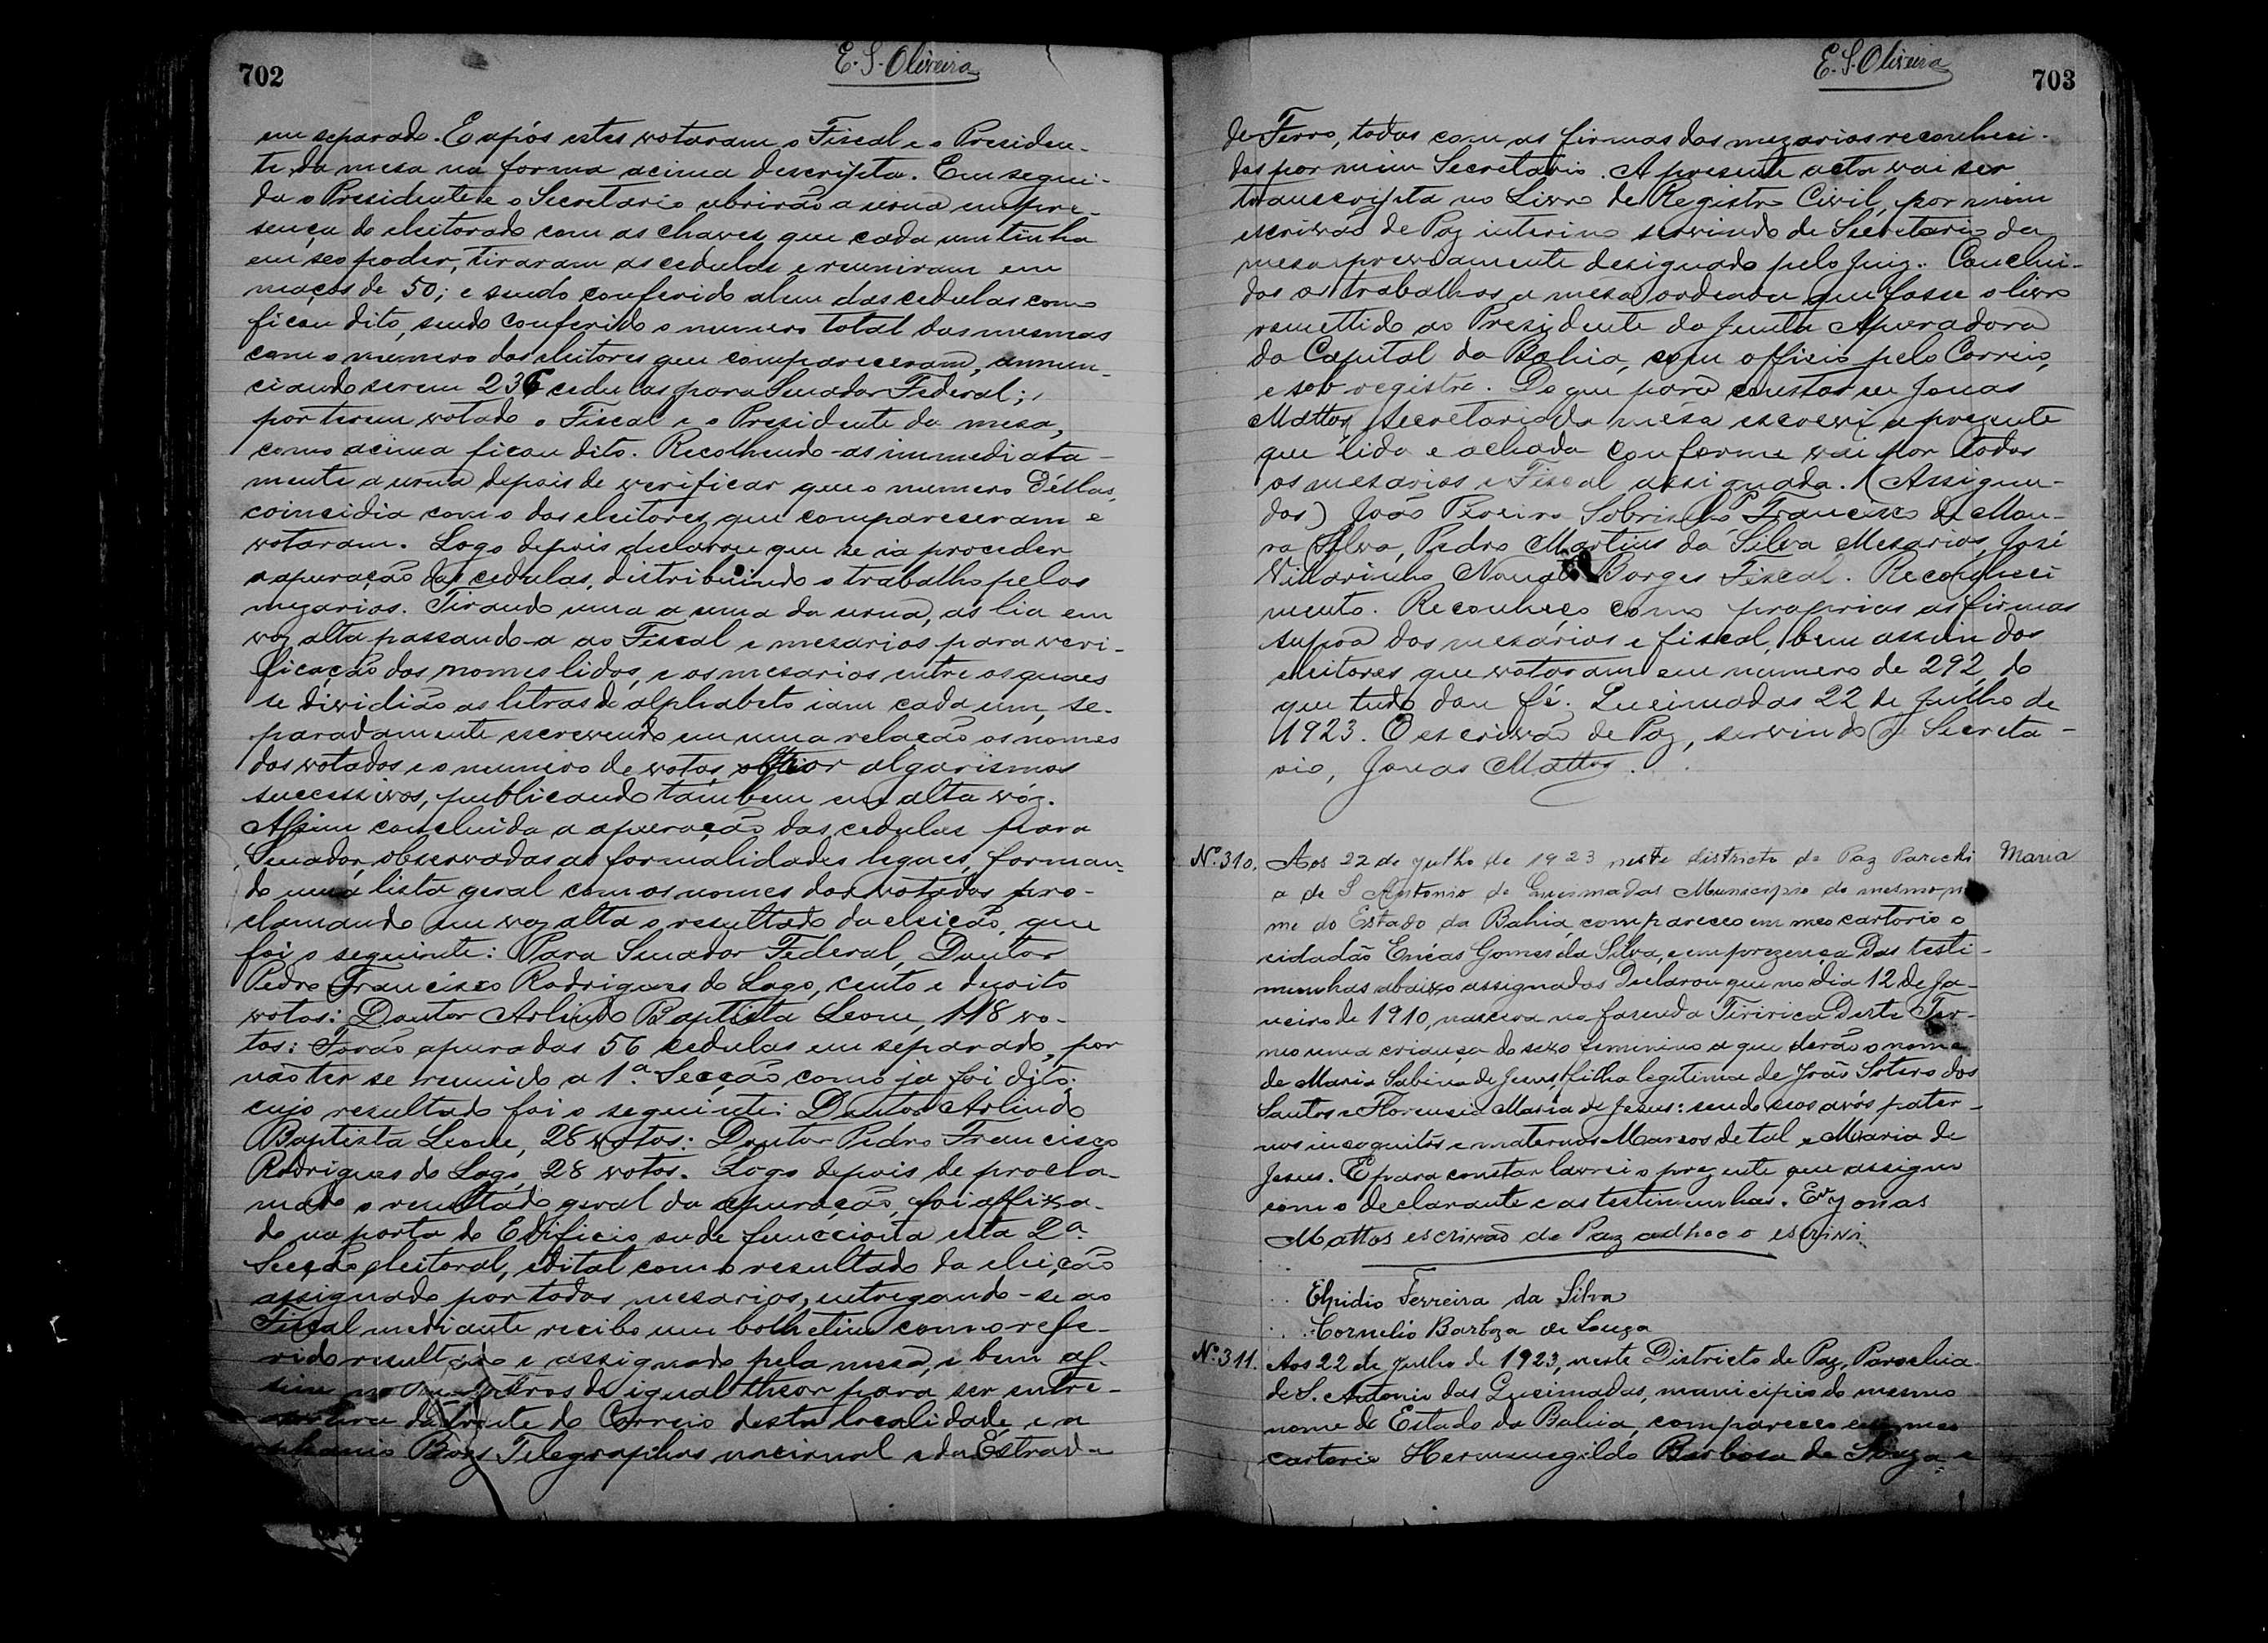 702
E. S. Oliveira
em separado. E após estes votaram o Fiscal e o Presiden-
te da mesa na forma acima descripta. Em segui-
da o Presidente e o Secretario abrirão a urna em pre-
sença do eleitorado com as chaves que cada um tinha
em seo poder, tiraram as cedulas e reuniram em
maços de 50; e sendo conferido alem das cedulas como
ficou dito, sendo conferido o numero total das mesmas
com o numero dos eleitores que compareceram, annun-
ciando serem 236 cedulas para Senador Federal;
por terem votado o Fiscal e o Presidente da mesa,
como acima ficou dito. Recolhendo-as immediata-
mente a urna depois de verificar que o numero d'ellas,
coincidia com o dos eleitores que compareceram e
votaram. Logo depois declarou que se ia proceder
a apuração das cedulas, distribuindo o trabalho pelos
mezarios. Tirando uma a uma da urna, as lia em
voz alta passando-a ao Fiscal e mesarios para veri-
ficação dos nomes lidos, e os mesarios entre os quaes
se dividião as letras do alphabeto iam cada um, se-
paradamente escrevendo em uma relação os nomes
dos votados e o numero de votos por algarismos
successivos, publicando tambem em alta vóz.
Assim concluida a apuração das cedulas para
Senador, observadas as formalidades legaes, forman-
do uma lista geral com os nomes dos votados pro-
clamando em voz alta o resultado da eleição, que
foi o seguinte: Para Senador Federal, Doutor
Pedro Francisco Rodrigues do Lago, cento e dezoito
votos: Doutor Arlindo Baptista Leone, 118 vo-
tos: Forão apuradas 56 cedulas em separado, por
não ter se reunido a 1ª Secção como ja foi dito:
cujo resultado foi o seguinte: Doutor Arlindo
Baptista Leone, 28 votos: Doutor Pedro Francisco
Rodrigues do Lago, 28 votos. Logo depois de procla-
mado o resultado geral da apuração, foi affixa-
do na porta do Edificio onde funcciona esta 2ª
Secção eleitoral, edital com o resultado da eleição
assignado por todos mesarios, entregando-se ao
Fiscal mediante recibo um bolhetim com o refe-
rido resultado e assignado pela mesa, e bem as-
sim de igual theor para ser entre-
do Correio desta localidade, e a
Telegraphos nacional e da Estrada
703
E. S. Oliveira
de Ferro, todas com as firmas dos mezarios reconheci-
das por mim Secretario. A presente acta vai ser
transcripta no Livro de Registro Civil, por mim
escrivão de Paz interino servindo de Secretario da
mesa previamente designado pelo Juiz. Conclui-
dos os trabalhos a mesa ordenou que fosse o livro
remettido ao Presidente da Junta Apuradora
da Capital da Bahia, com officio pelo Correio,
e sob registro. Do que para constar eu Jonas
Mattos, secretario da mesa escrevi a prezente
que lida e achada conforme vai por todos
os mesarios e Fiscal assignada. (Assigna-
dos) João Pereira Sobrinho P. Francisco de Mou-
ra Silva, Pedro Martins da Silva Mesarios, José
Villarinho Borges Fiscal. Reconheci
mento. Reconheço como proprias as firmas
supra dos mesarios e fiscal, bem assim dos
eleitores que votaram em numero de 292, do
que tudo dou fé. Queimadas 22 de Julho de
1923. O escrivão de Paz, servindo de Secreta-
rio, Jonas Mattos.
Nº 310. Aos 22 de julho de 1923 neste districto de Paz Parochi Maria
a de S Antonio de Queimadas Municipio do mesmo no
me do Estado da Bahia, compareceo em meo cartorio o
cidadão Enéas Gomes da Silva, e em prezença das testi-
munhas abaixo assignadas Declarou que no dia 12 de Ja-
neiro de 1910, nascera na fasenda Tiririca deste Ter-
mo uma criança do sexo feminino a que derão o nome
de Maria Sabina de Jesus, filha legitima de João Sotero dos
Santos e Florencia Maria de Jesus: sendo seos avós pater-
nos incognitos e maternos Marcos de tal e Maria de
Jesus. E para constar lavrei o prezente que assigno
com o declarante e as testimunhas. Eu Jonas
Mattos escrivão de Paz adhoc o escrivi
Elpidio Ferreira da Silva
Cornelio Barboza de Souza
Nº 311. Aos 22 de Julho de 1923, neste Districto de Paz, Parochia
de S. Antonio das Queimadas, municipio do mesmo
nome do Estado da Bahia, compareceo em meo
cartorio Hermenegildo Barbosa de Souza e